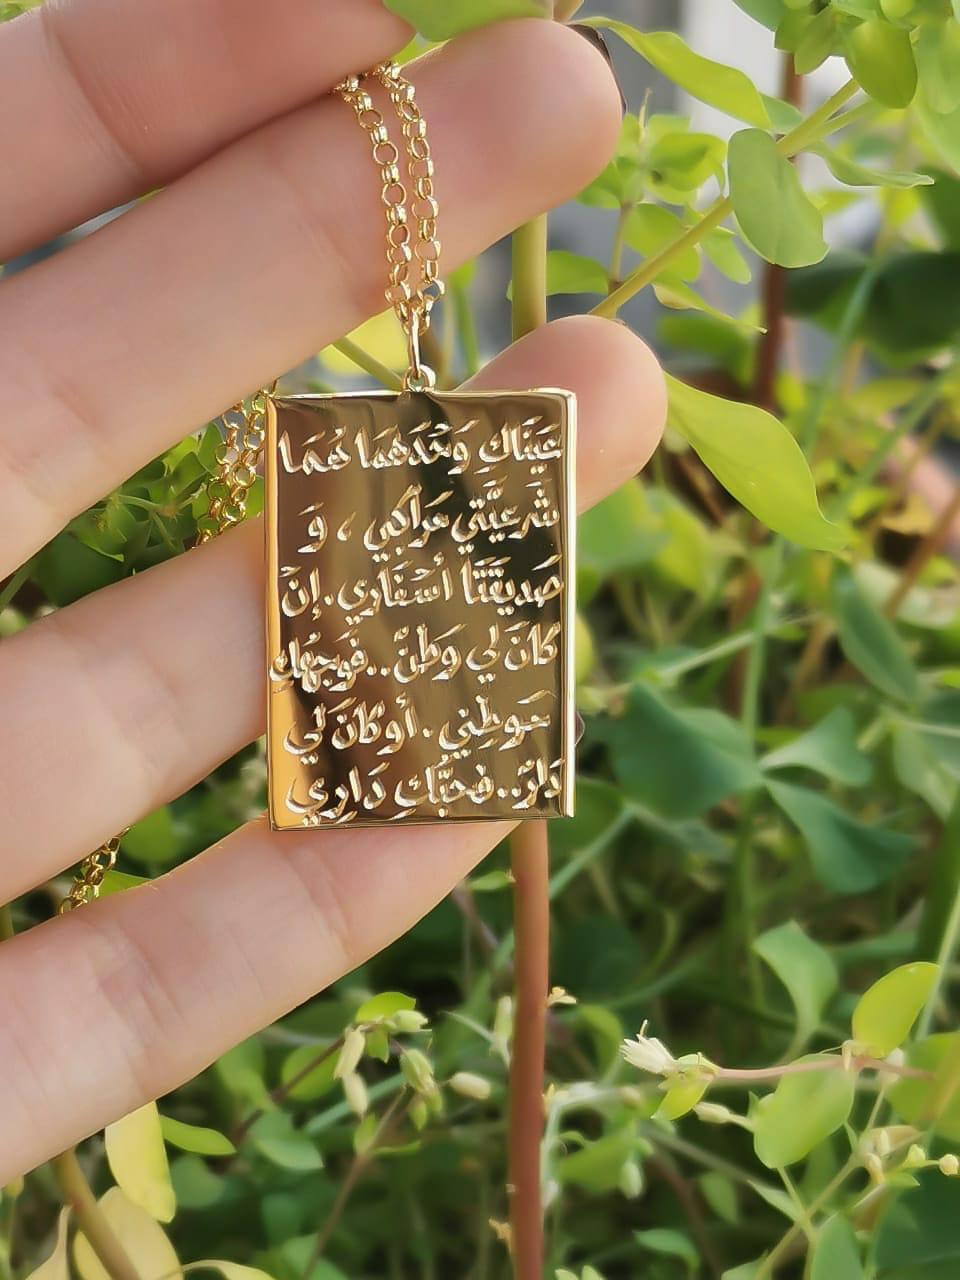 عَيْنَاكِ وَحْدَهُمَا هُمَا
شَرْعِيَّتي مَرَاكِبي ، وَ
صَديقَتَا أَسْفَاري . إِنْ
كَانَ لي وَطَنٌ .. فَوَجهُكِ
مَوطِني . أَو كَانَ لي
دَارٌ .. فَحُبُّك دَاري